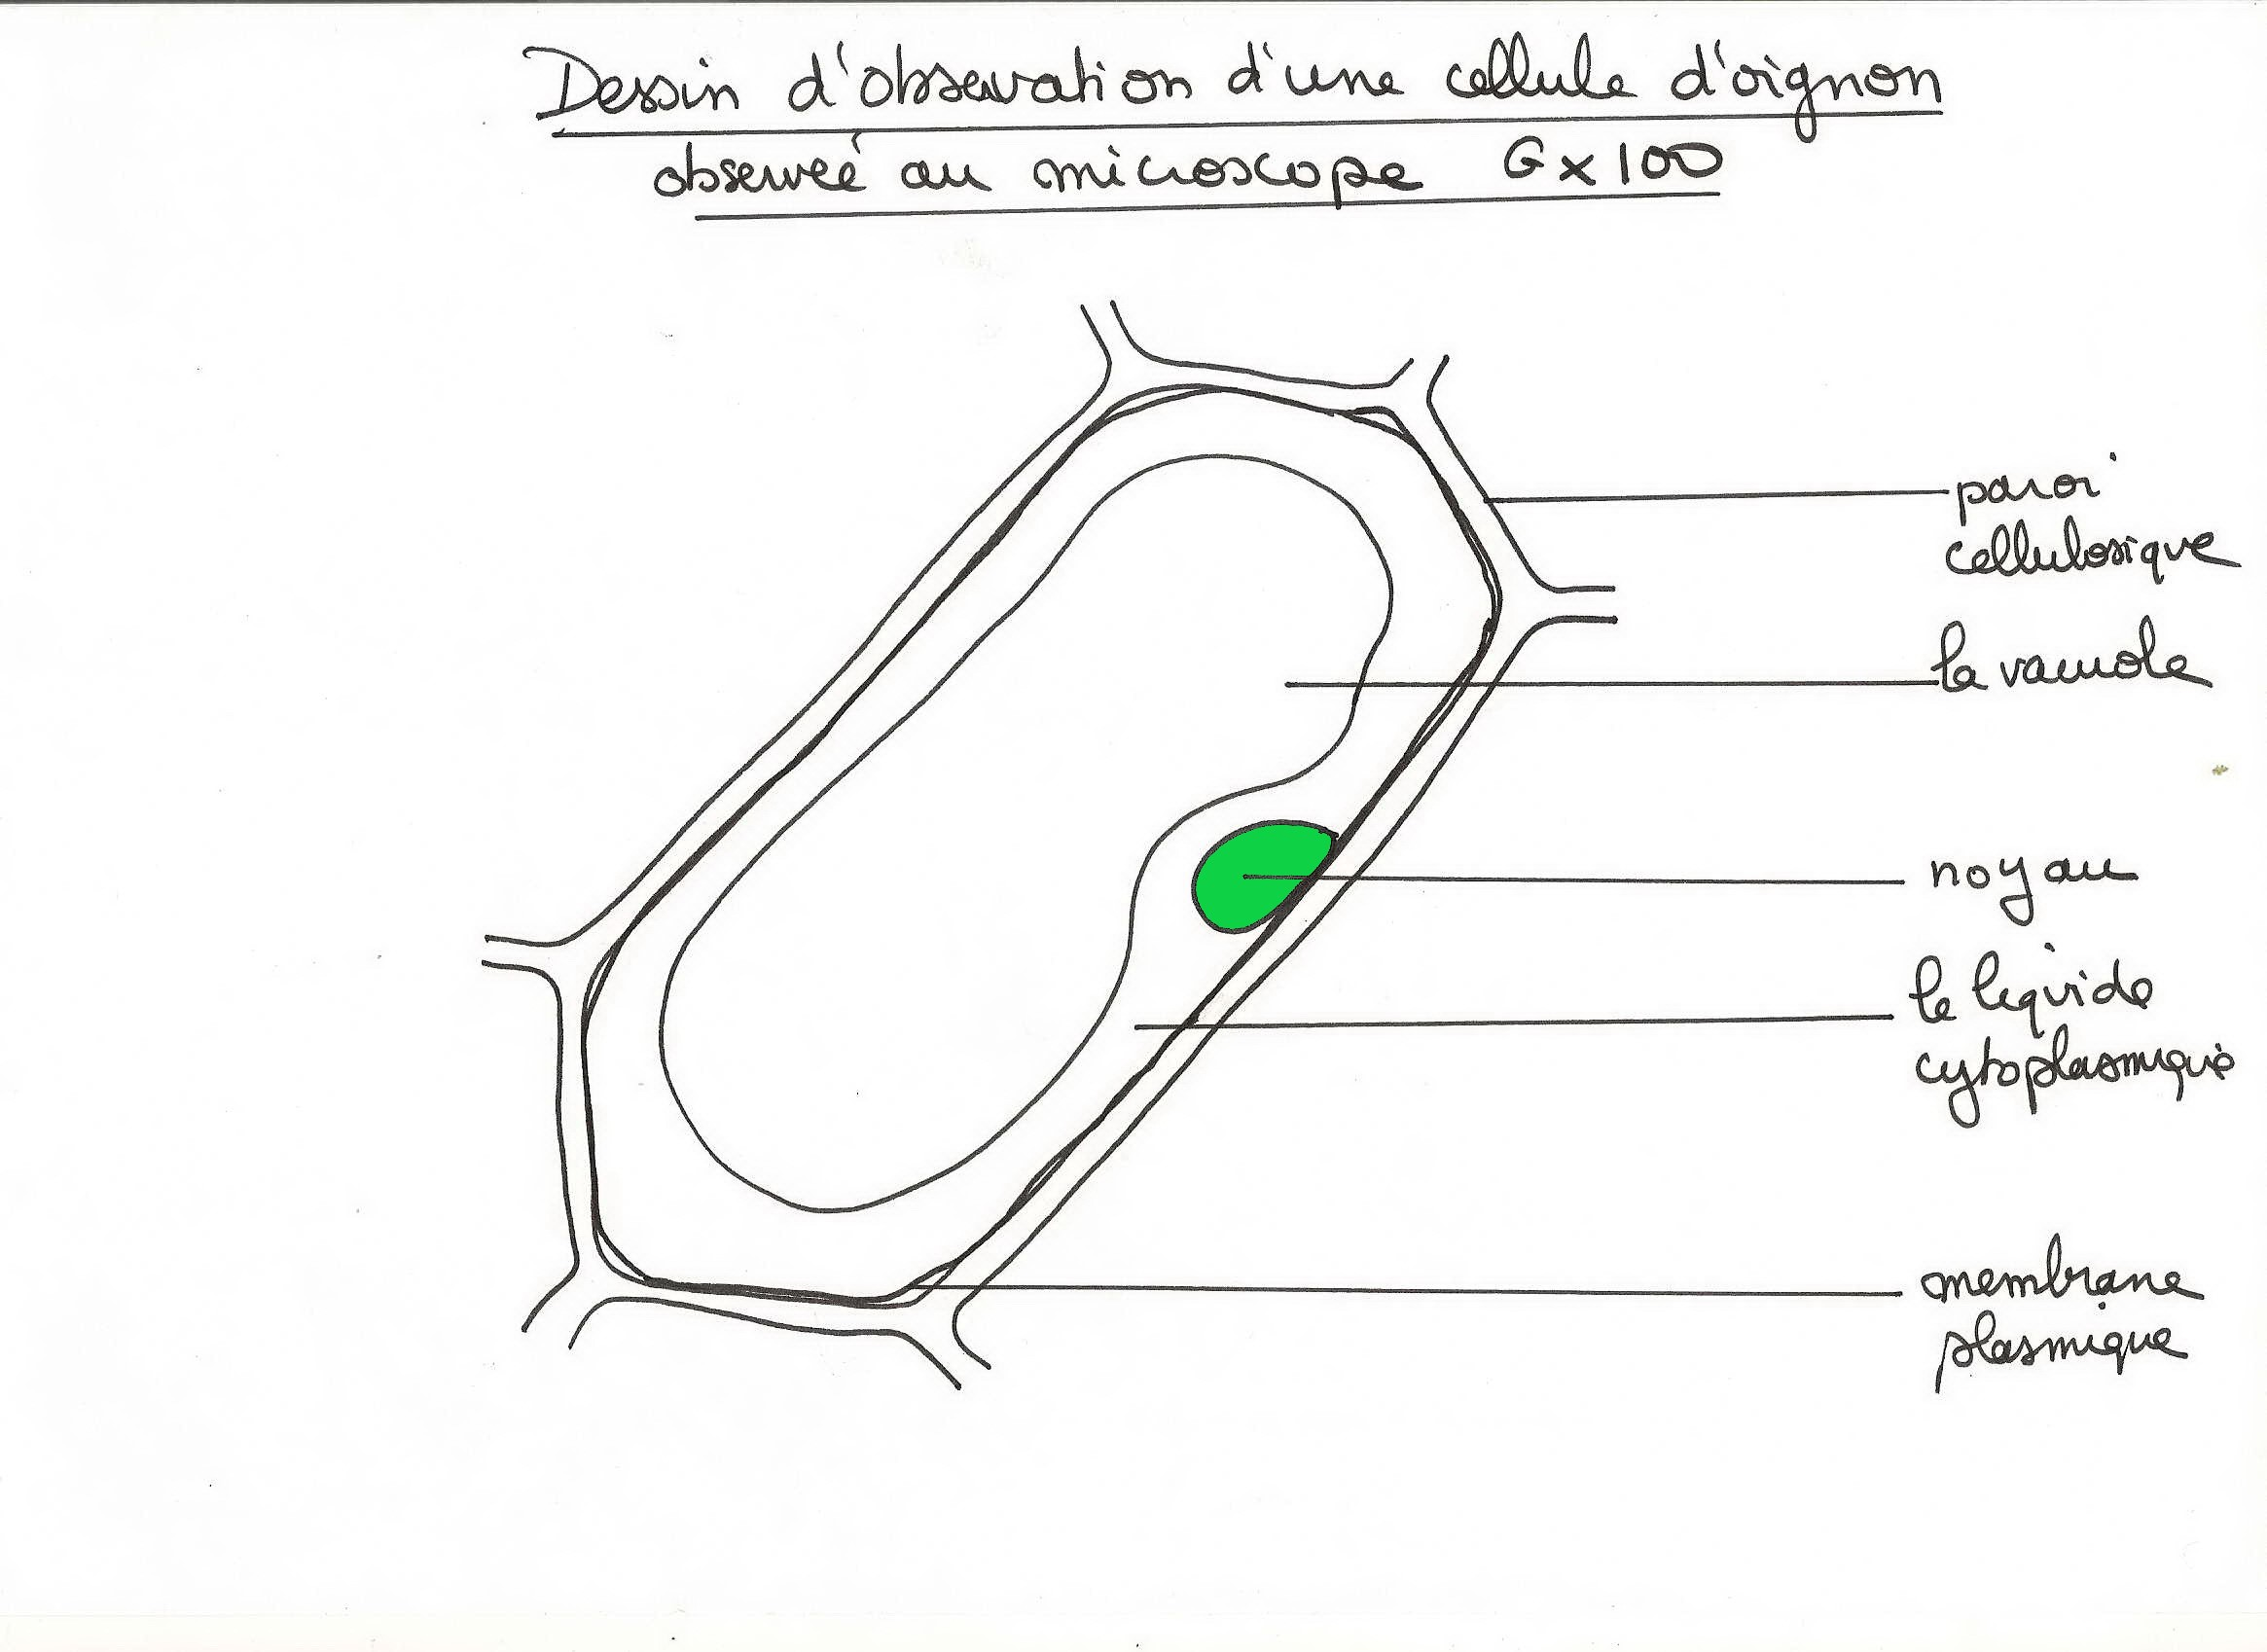 Dessin d'observation d'une cellule d'oignon
observée au microscope G x 100
paroi
cellulosique
la vacuole
noyau
le liquide
cytoplasmique
membrane
plasmique